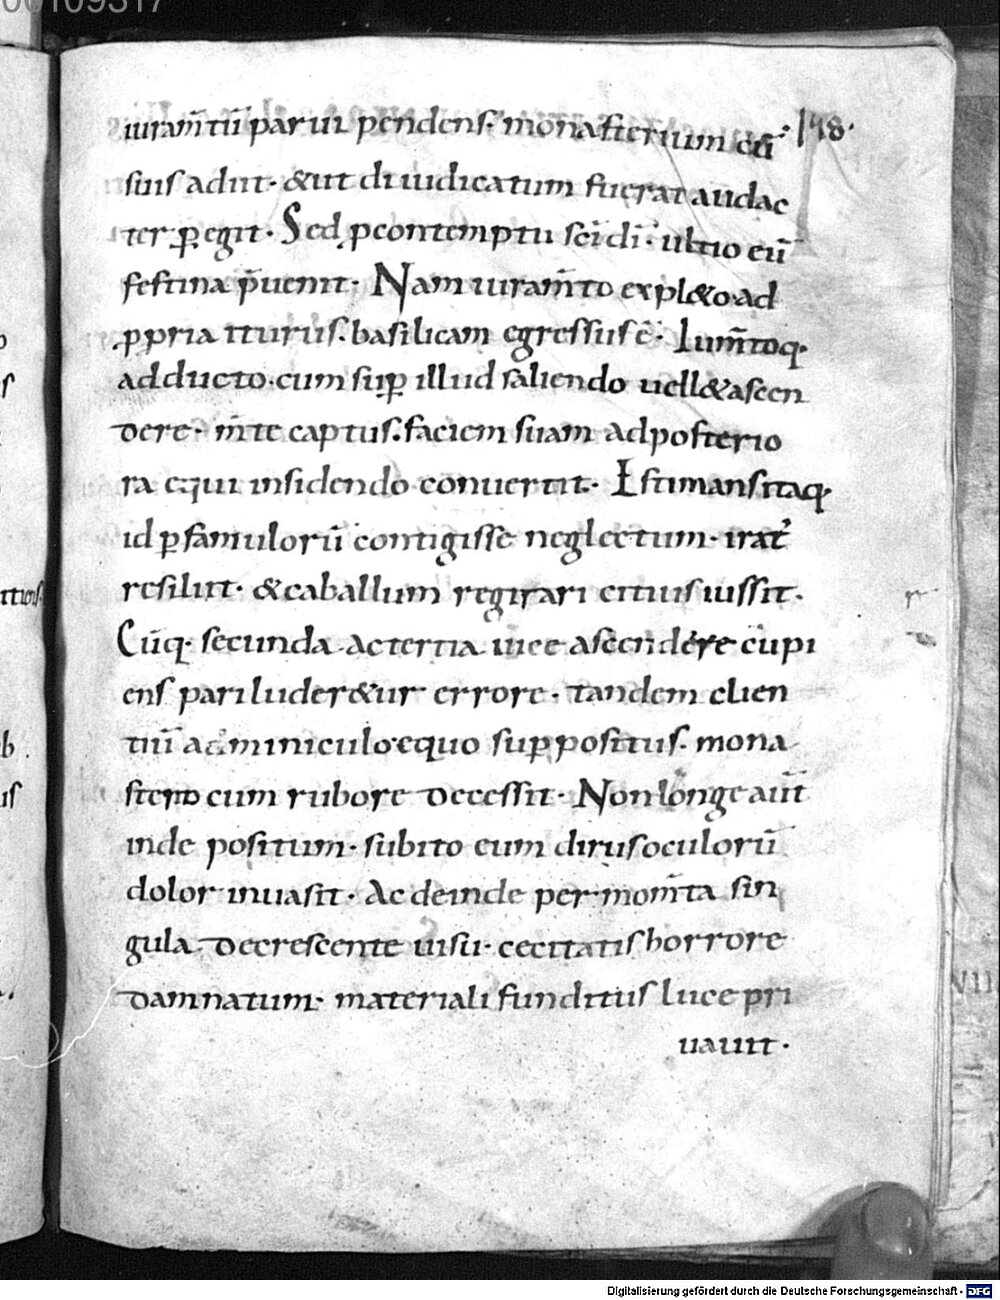 00109317
iuram̄tū parui pendens. monasterium cū
suis adiit. &ut diiudicatum fuerat audac
ter ꝑegit. Sed ꝓ contemptu sc̄i dī. ultio eū
festina p̄uenit. Nam iuram̄to expl&o. ad
ꝓpria iturus. basilicam egressus ē. Ium̄toq.
adducto. cum suꝑ illud saliendo uell& ascen
dere. m̄te captus. faciem suam ad posterio
ra equi insidendo conuertit. Estimans itaq.
id ꝑ famulorū contigisse neglectum. irat᷒
resiliit. &caballum regirari citius iussit.
Cūq. secunda ac tertia uice ascendere cupi
ens pari luder&ur errore. tandem clien
tiū adminiculo equo suꝑpositus. mona
sterio cum rubore decessit. Non longe aūt
inde positum. subito eum dirus oculorū
dolor inuasit. Ac deinde per mom̄ta sin
gula decrescente uisu. cecitatis horrore
damnatum. materiali funditus luce pri
uauit.
148.
Digitalisierung gefördert durch die Deutsche Forschungsgemeinschaft - DFG